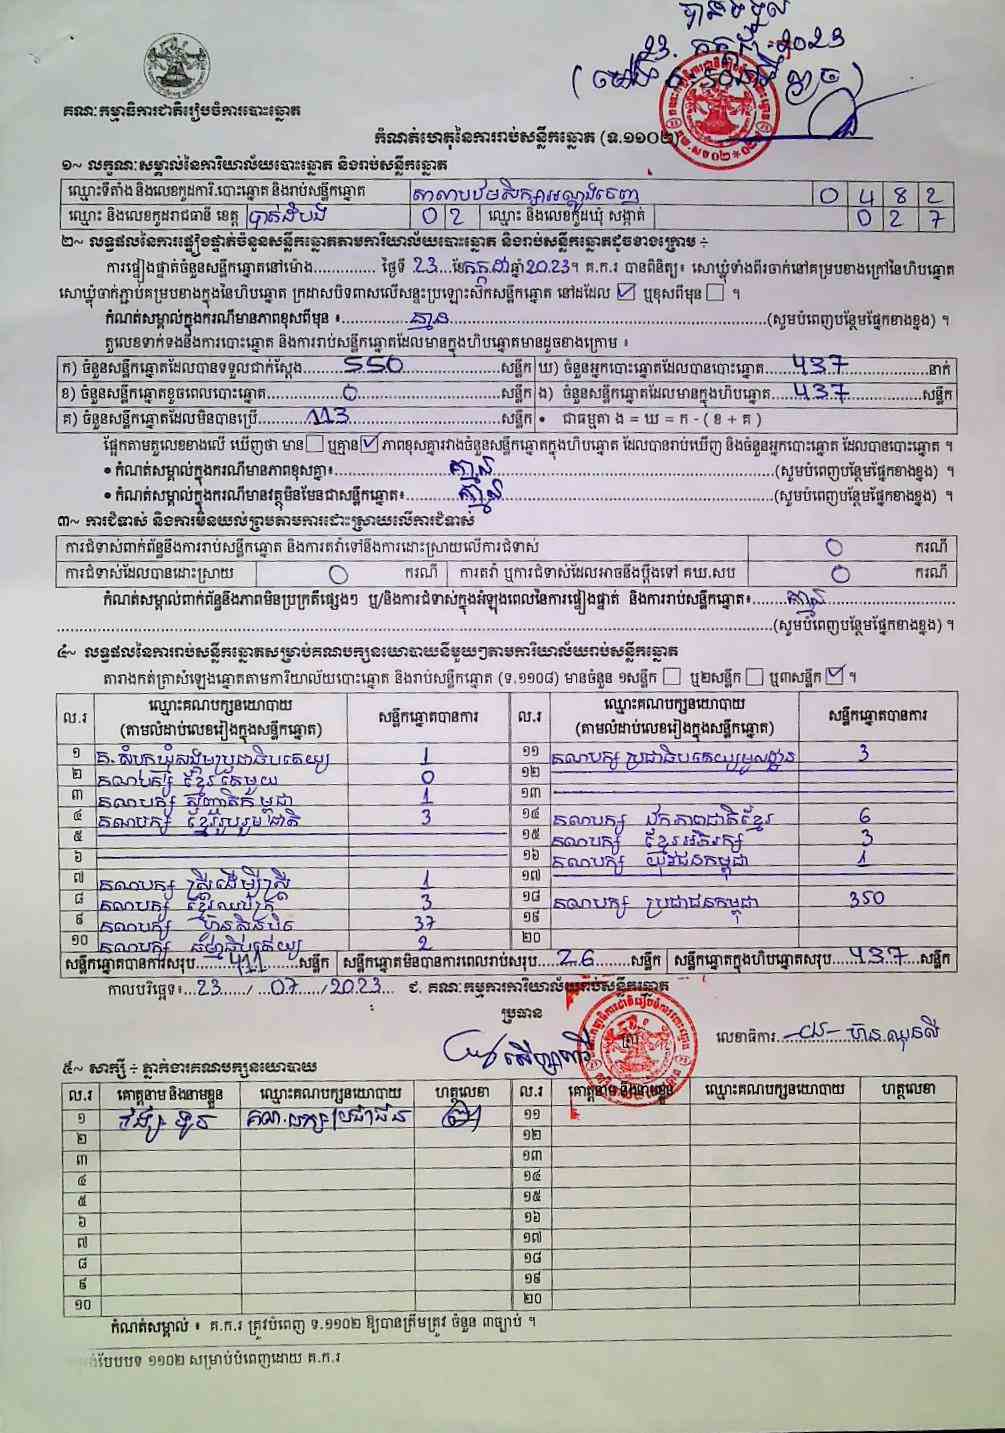 បានទទួល
23. កក្កដា 2023
គណៈកម្មាធិការជាតិរៀបចំការបោះឆ្នោត
កំណត់ហេតុនៃការរាប់សន្លឹកឆ្នោត (ទ.១១០២)
១~ លក្ខណៈសម្គាល់នៃការិយាល័យបោះឆ្នោត និងរាប់សន្លឹកឆ្នោត
ឈ្មោះទីតាំង និងលេខកូដការិ.បោះឆ្នោត និងរាប់សន្លឹកឆ្នោត សាលាបឋមសិក្សាអណ្ដូងចេញ 0 4 8 2
ឈ្មោះ និងលេខកូដរាជធានី ខេត្ត បាត់ដំបង 0 2 ឈ្មោះ និងលេខកូដឃុំ សង្កាត់ 0 2 7
២~ លទ្ធផលនៃការផ្ទៀងផ្ទាត់ចំនួនសន្លឹកឆ្នោតតាមការិយាល័យបោះឆ្នោត និងរាប់សន្លឹកឆ្នោតដូចខាងក្រោម ÷
ការផ្ទៀងផ្ទាត់ចំនួនសន្លឹកឆ្នោតនៅម៉ោង.............. ថ្ងៃទី 23 ខែ កក្កដា ឆ្នាំ 2023។ គ.ក.រ បានពិនិត្យ៖ សោឃ្នុំទាំងពីរចាក់នៅគម្របខាងក្រៅនៃហិបឆ្នោត
សោឃ្នុំចាក់ភ្ជាប់គម្របខាងក្នុងនៃហិបឆ្នោត ក្រដាសបិទពាសលើសន្ទះប្រឡោះសៀតសន្លឹកឆ្នោត នៅដដែល ☑ ឬខុសពីមុន ☐ ។
កំណត់សម្គាល់ក្នុងករណីមានភាពខុសពីមុន ៖ គ្មាន (សូមបំពេញបន្ថែមផ្នែកខាងខ្នង) ។
តួលេខទាក់ទងនឹងការបោះឆ្នោត និងការរាប់សន្លឹកឆ្នោតដែលមានក្នុងហិបឆ្នោតមានដូចខាងក្រោម ៖
ក) ចំនួនសន្លឹកឆ្នោតដែលបានទទួលជាក់ស្ដែង 550 សន្លឹក ឃ) ចំនួនអ្នកបោះឆ្នោតដែលបានបោះឆ្នោត 437 នាក់
ខ) ចំនួនសន្លឹកឆ្នោតខូចពេលបោះឆ្នោត 0 សន្លឹក ង) ចំនួនសន្លឹកឆ្នោតដែលមានក្នុងហិបឆ្នោត 437 សន្លឹក
គ) ចំនួនសន្លឹកឆ្នោតដែលមិនបានប្រើ 113 សន្លឹក • ជាធម្មតា ង = ឃ = ក - ( ខ + គ )
ផ្អែកតាមតួលេខខាងលើ ឃើញថា មាន ☐ ឬគ្មាន ☑ ភាពខុសគ្នារវាងចំនួនសន្លឹកឆ្នោតក្នុងហិបឆ្នោត ដែលបានរាប់ឃើញ និងចំនួនអ្នកបោះឆ្នោត ដែលបានបោះឆ្នោត ។
• កំណត់សម្គាល់ក្នុងករណីមានភាពខុសគ្នា៖ គ្មាន (សូមបំពេញបន្ថែមផ្នែកខាងខ្នង) ។
• កំណត់សម្គាល់ក្នុងករណីមានវត្ថុមិនមែនជាសន្លឹកឆ្នោត៖ គ្មាន (សូមបំពេញបន្ថែមផ្នែកខាងខ្នង) ។
៣~ ការជំទាស់ និងការមិនយល់ព្រមតាមការដោះស្រាយលើការជំទាស់
ការជំទាស់ពាក់ព័ន្ធនឹងការរាប់សន្លឹកឆ្នោត និងការតវ៉ាទៅនឹងការដោះស្រាយលើការជំទាស់ 0 ករណី
ការជំទាស់ដែលបានដោះស្រាយ 0 ករណី ការតវ៉ា ឬការជំទាស់ដែលអាចនឹងប្ដឹងទៅ គឃ.សប 0 ករណី
កំណត់សម្គាល់ពាក់ព័ន្ធនឹងភាពមិនប្រក្រតីផ្សេងៗ ឬ/និងការជំទាស់ក្នុងអំឡុងពេលនៃការផ្ទៀងផ្ទាត់ និងការរាប់សន្លឹកឆ្នោត៖ គ្មាន
(សូមបំពេញបន្ថែមផ្នែកខាងខ្នង) ។
៤~ លទ្ធផលនៃការរាប់សន្លឹកឆ្នោតសម្រាប់គណបក្សនយោបាយនីមួយៗតាមការិយាល័យរាប់សន្លឹកឆ្នោត
តារាងកត់ត្រាសំឡេងឆ្នោតតាមការិយាល័យបោះឆ្នោត និងរាប់សន្លឹកឆ្នោត (ទ.១១០៨) មានចំនួន ១សន្លឹក ☐ ឬ២សន្លឹក ☐ ឬ៣សន្លឹក ☑ ។
ល.រ ឈ្មោះគណបក្សនយោបាយ (តាមលំដាប់លេខរៀងក្នុងសន្លឹកឆ្នោត) សន្លឹកឆ្នោតបានការ ល.រ ឈ្មោះគណបក្សនយោបាយ (តាមលំដាប់លេខរៀងក្នុងសន្លឹកឆ្នោត) សន្លឹកឆ្នោតបានការ
១ គ.សំបុកឃ្មុំសង្គមប្រជាធិបតេយ្យ 1 ១១ គណបក្ស ប្រជាធិបតេយ្យមូលដ្ឋាន 3
២ គណបក្ស ខ្មែរតែមួយ 0 ១២
៣ គណបក្ស សញ្ជាតិកម្ពុជា 1 ១៣
៤ គណបក្ស ខ្មែររួបរួមជាតិ 3 ១៤ គណបក្ស ឯកភាពជាតិខ្មែរ 6
៥ ១៥ គណបក្ស ខ្មែរអភិរក្ស 3
៦ ១៦ គណបក្ស យុវជនកម្ពុជា 1
៧ គណបក្ស ស្ត្រីដើម្បីស្ត្រី 1 ១៧
៨ គណបក្ស ខ្មែរឈប់ក្រ 3 ១៨ គណបក្ស ប្រជាជនកម្ពុជា 350
៩ គណបក្ស ហ៊្វុនស៊ិនប៉ិច 37 ១៩
១០ គណបក្ស ធម្មាធិបតេយ្យ 2 ២០
សន្លឹកឆ្នោតបានការសរុប 411 សន្លឹក សន្លឹកឆ្នោតមិនបានការពេលរាប់សរុប 26 សន្លឹក សន្លឹកឆ្នោតក្នុងហិបឆ្នោតសរុប 437 សន្លឹក
កាលបរិច្ឆេទ៖ 23 / 07 / 2023 ជ. គណៈកម្មការការិយាល័យរាប់សន្លឹកឆ្នោត
ប្រធាន
លេខាធិការ
៥~ សាក្សី ÷ ភ្នាក់ងារគណបក្សនយោបាយ
ល.រ គោត្តនាម និងនាមខ្លួន ឈ្មោះគណបក្សនយោបាយ ហត្ថលេខា ល.រ គោត្តនាម និងនាមខ្លួន ឈ្មោះគណបក្សនយោបាយ ហត្ថលេខា
១ គណ.បក្សប្រជាជន ១១
២ ១២
៣ ១៣
៤ ១៤
៥ ១៥
៦ ១៦
៧ ១៧
៨ ១៨
៩ ១៩
១០ ២០
កំណត់សម្គាល់ ៖ គ.ក.រ ត្រូវបំពេញ ទ.១១០២ ឱ្យបានត្រឹមត្រូវ ចំនួន ៣ច្បាប់ ។
បែបបទ ១១០២ សម្រាប់បំពេញដោយ គ.ក.រ